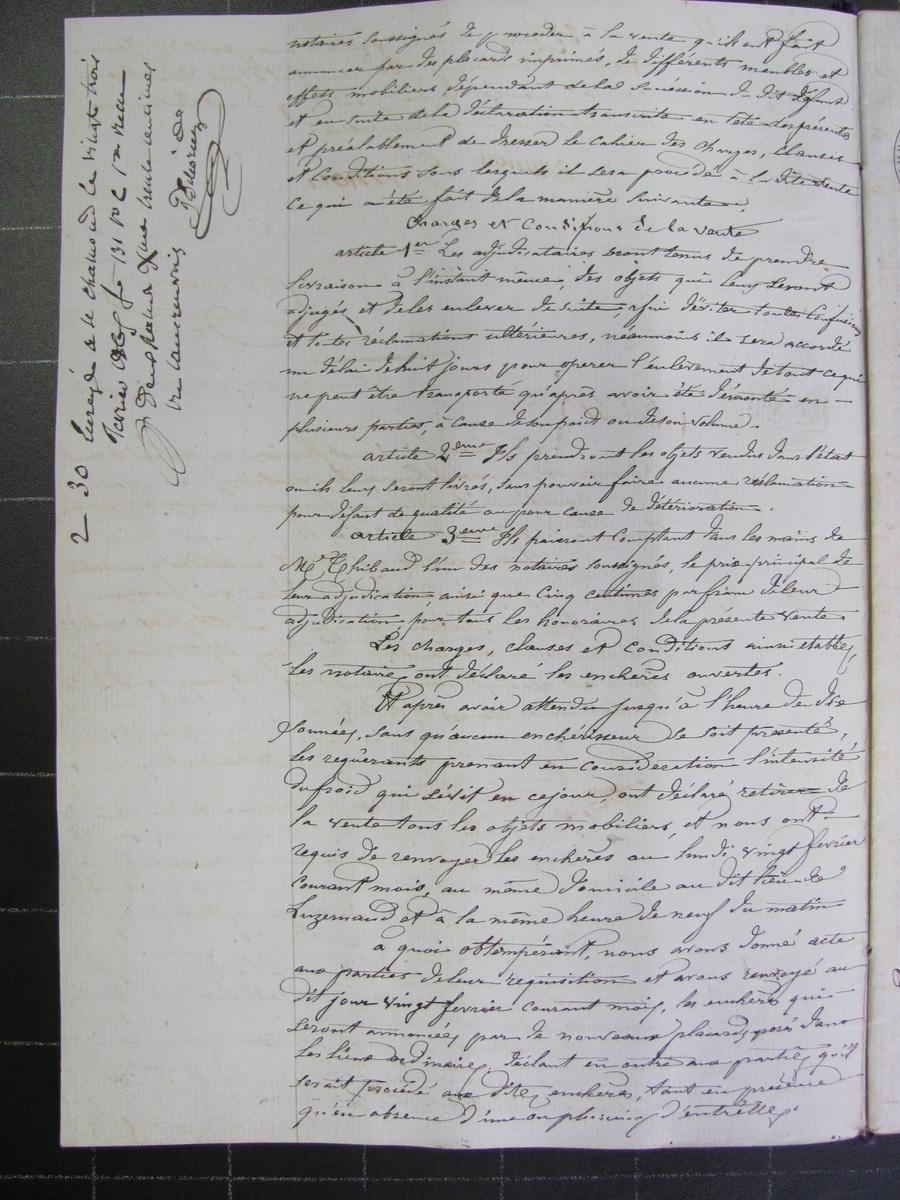 notaires soussignés de procéder à la vente qu'ils ont fait
annoncer par des placards imprimés, de différents meubles et
effets mobiliers dépendant de la succession du dit défunt
et en suite de la déclaration transcrite en tête des présentes
et préalablement de dresser le cahier des charges, clauses
et conditions sous lesquels il sera procédé à la dite vente
ce qui a été fait de la manière suivante.
Charges et conditions de la vente
article 1er Les adjudicataires seront tenus de prendre
livraison à l'instant même, des objets qui leur seront
adjugés et de les enlever de suite afin d'éviter toutes confusions
et toutes réclamations ultérieures, néanmoins il sera accordé
un délai de huit jours pour opérer l'enlèvement de tout ce qui
ne peut être transporté qu'après avoir été démonté en
plusieurs parties, à cause de son poids ou de son volume.
article 2eme Ils prendront les objets vendus dans l'état
où ils leurs seront livrés, sans pouvoir faire aucune réclamation
pour défaut de qualité ou pour cause de détérioration.
article 3eme Ils paieront comptant dans les mains de
Me Thibaud l'un des notaires soussignés, le prix principal de
leur adjudication ainsi que cinq centimes par franc de leur
adjudication pour tous les honoraires de la présente vente.
Les charges, clauses et conditions ainsi établies,
les notaires ont déclaré les enchères ouvertes.
Et après avoir attendu jusqu'à l'heure de dix
sonnées, sans qu'aucun enchérisseur se soit présenté,
les requérants prenant en considération l'intensité
du froid qui sévit en ce jour, ont déclaré retirer de
la vente tous les objets mobiliers, et nous ont
requis de renvoyer les enchères au lundi vingt février
courant mois, au même domicile au dit lieu de
Luzernaud et à la même heure de neuf du matin
à quoi obtempérant, nous avons donné acte
aux parties de leur réquisition et avons renvoyé au
dit jour vingt février courant mois, les enchères qui
seront annoncées par de nouveaux placards posés dans
les lieux ordinaires, déclarant en outre aux parties qu'il
serait procédé aux dites enchères, tant en présence
qu'en absence d'une ou plusieurs d'entr'elles.
2 30 Enregé à St chamond le vingt trois
février
deux francs